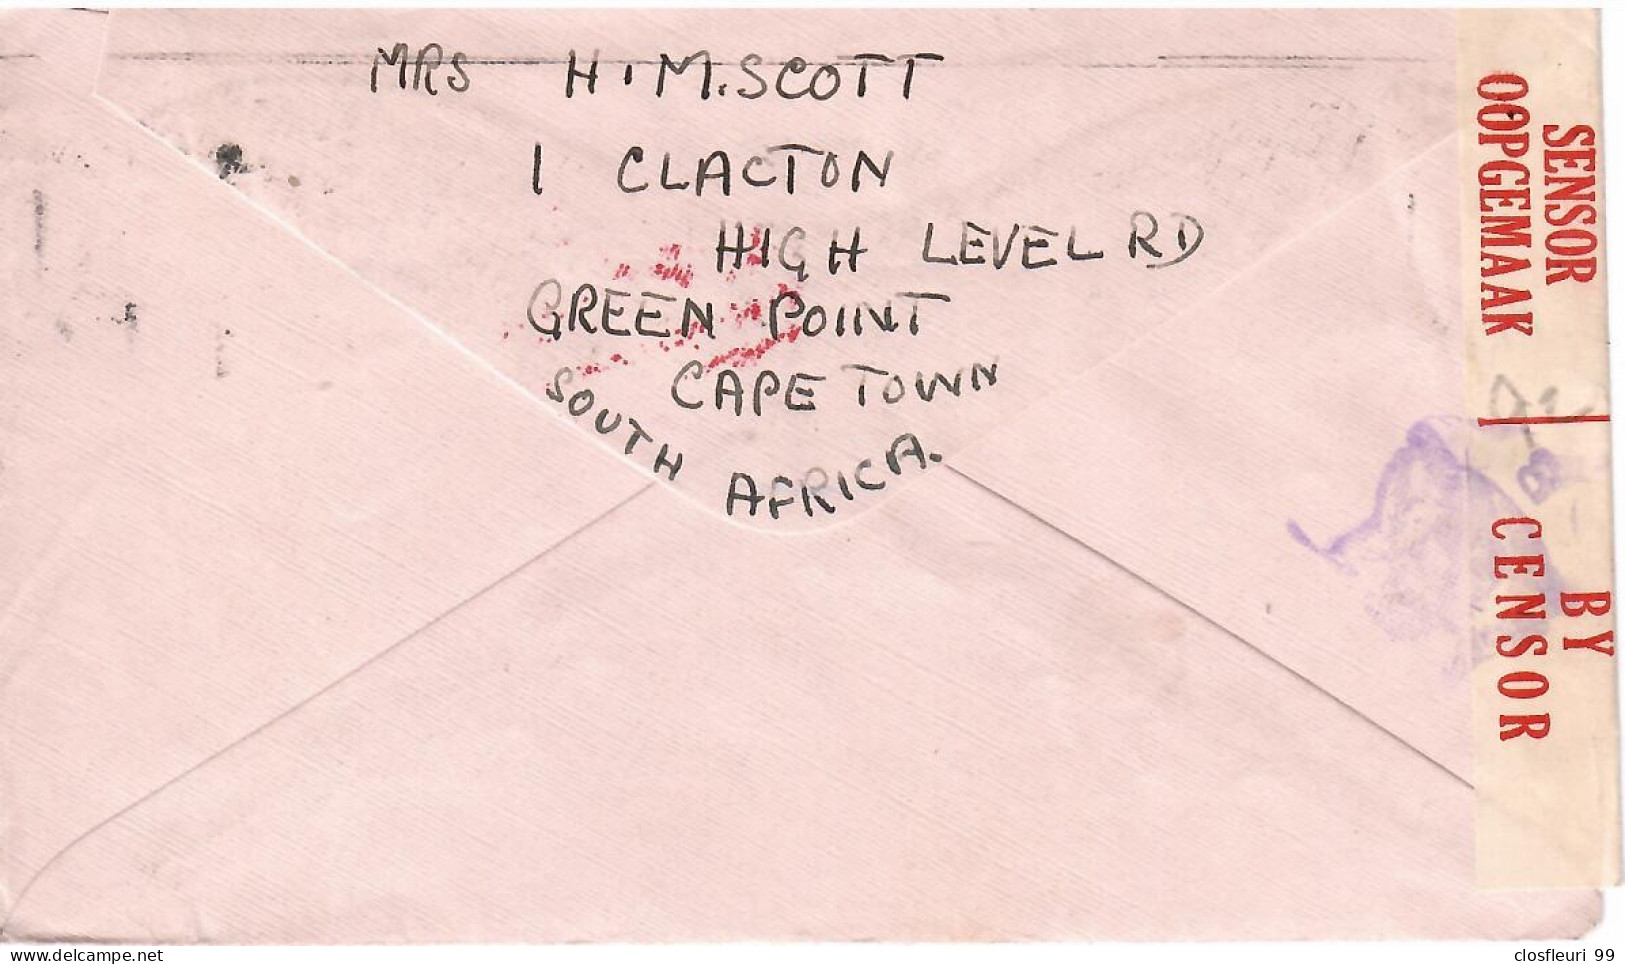 MRS H.M.SCOTT
1 CLACTON
HIGH LEVEL RD
GREEN POINT
CAPE TOWN
SOUTH AFRICA.
SENSOR
OOPGEMAAK
BY
CENSOR
closfleuri 99